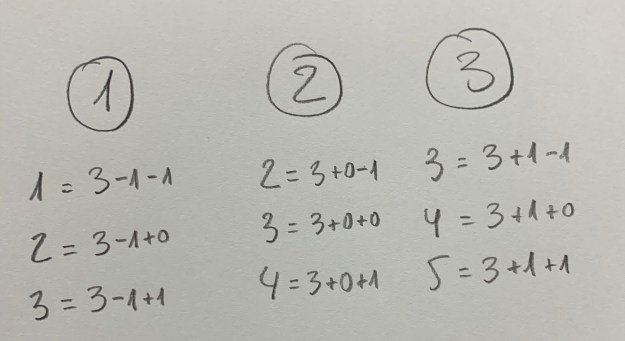 1 2 3
1 = 3-1-1 2 = 3+0-1 3 = 3+1-1
2 = 3-1+0 3 = 3+0+0 4 = 3+1+0
3 = 3-1+1 4 = 3+0+1 5 = 3+1+1